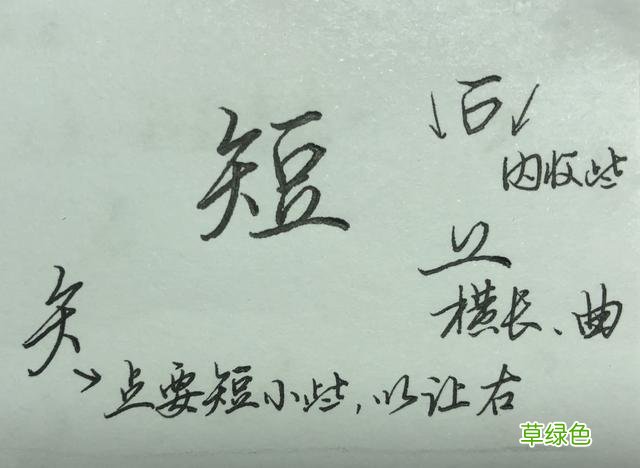 短
内收些
横长、曲
矢
点要短小些,以让右
草绿色